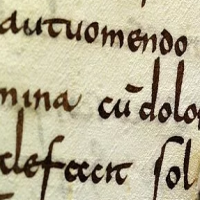 autuomendo
mina cū dolo
defecit sol